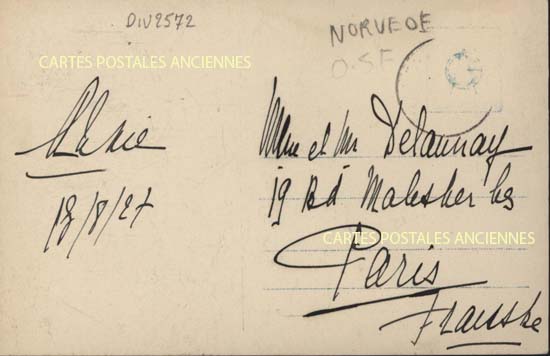 DIV2572
NORVEGE
O.S.F
CARTES POSTALES ANCIENNES
18/8/27
Mme et Mr Delaunay
19 Bd Malesherbes
CARTES POSTALES ANCIENNES
Paris